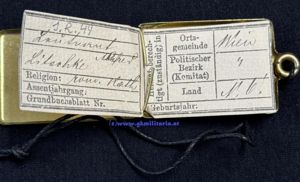 I. R. 44
Landwehr
Alfred
Litschke
Religion: röm. kath.
Assentjahrgang:
Grundbuchsblatt Nr.
Heimatberech-
tigt (zuständig) in
Orts-
gemeinde
Wien
Politischer
Bezirk
(Komitat)
4
Land
N. Ö.
Geburtsjahr:
(c) www.gkmilitaria.at